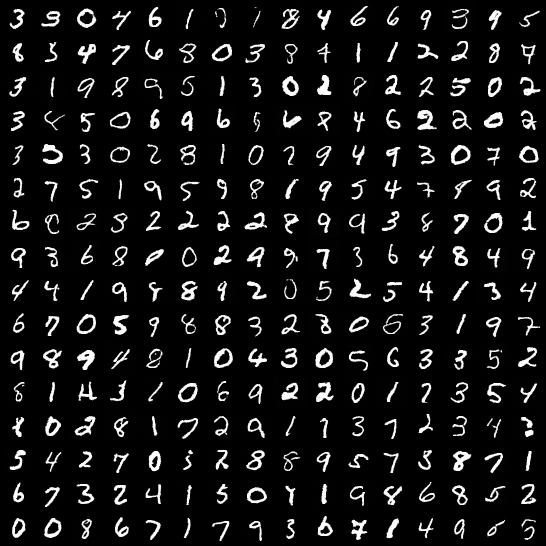 3 9 0 4 6 1 1 8 4 6 6 9 3 9 5
8 3 4 7 6 8 0 3 8 4 1 1 2 2 8 7
3 1 9 8 9 5 1 3 0 2 8 2 2 5 0 2
3 5 0 6 9 6 5 6 8 4 6 2 2 0 2
3 5 3 0 2 8 1 0 7 9 4 9 3 0 7 0
2 7 5 1 9 5 9 8 1 9 5 4 7 8 9 2
6 2 8 2 2 2 2 8 9 9 3 8 7 0 1
9 3 6 8 0 0 2 9 9 7 3 6 4 8 4 9
4 4 1 9 8 8 9 2 0 5 2 5 4 1 3 4
6 7 0 5 9 8 8 3 2 8 0 6 3 1 9 7
9 8 9 4 8 1 0 4 3 0 5 6 3 3 5 2
8 1 4 3 1 0 6 9 2 2 0 1 7 3 5 4
8 0 2 8 1 7 2 9 1 7 3 7 2 3 4 3
5 4 2 7 0 3 2 8 8 9 5 7 3 8 7 1
6 7 3 2 4 1 5 0 1 1 9 8 6 8 5 2
0 0 8 6 7 1 7 9 3 6 7 1 4 9 5